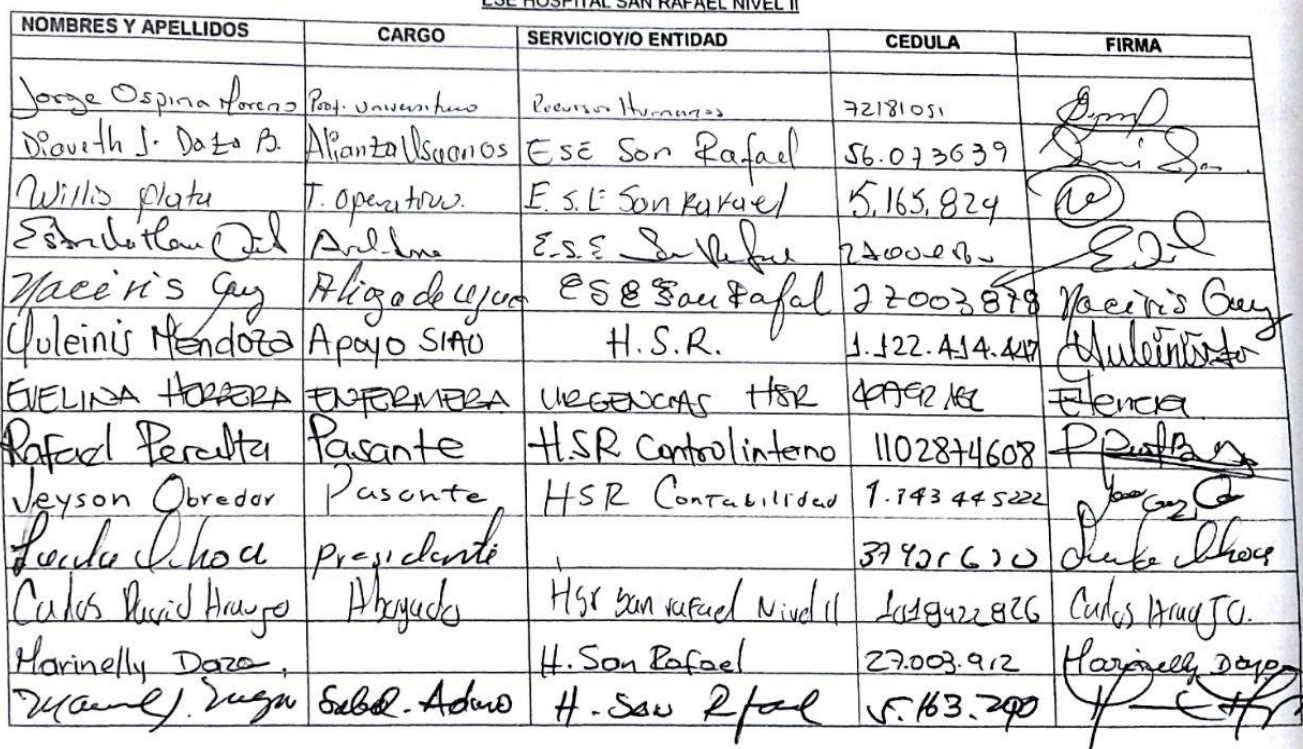 ESE HOSPITAL SAN RAFAEL NIVEL II
NOMBRES Y APELLIDOS CARGO SERVICIOY/O ENTIDAD CEDULA FIRMA
Jorge Ospina Moreno Prof. Universitario Recursos Humanos 72181051
Diaveth J. Daza B. Alianza Usuarios ESE San Rafael 56.073639
Willis Plata T. operativo. E.S.E San Rafael 5.165.824
E.S.E San Rafael
Yaceiris Guy ESE San Rafal 27003878 Yaceiris Guy
Yuleinis Mendoza Apoyo SIAU H.S.R. 1.122.414.447
EVELINA HERRERA ENFERMERA URGENCIAS HSR
Rafael Peralta Pasante HSR Control interno 1102874608
Jeyson Obredor Pasante HSR Contabilidad 1.143445222
Ochoa presidente Ochoa
Carlos David Araujo Abogado Hsr San rafael Nivel II 1018422826 Carlos Araujo.
Marinelly Daza, H. San Rafael 27.003.912 Marinelly Daza
H. San Rfael 5.163.290